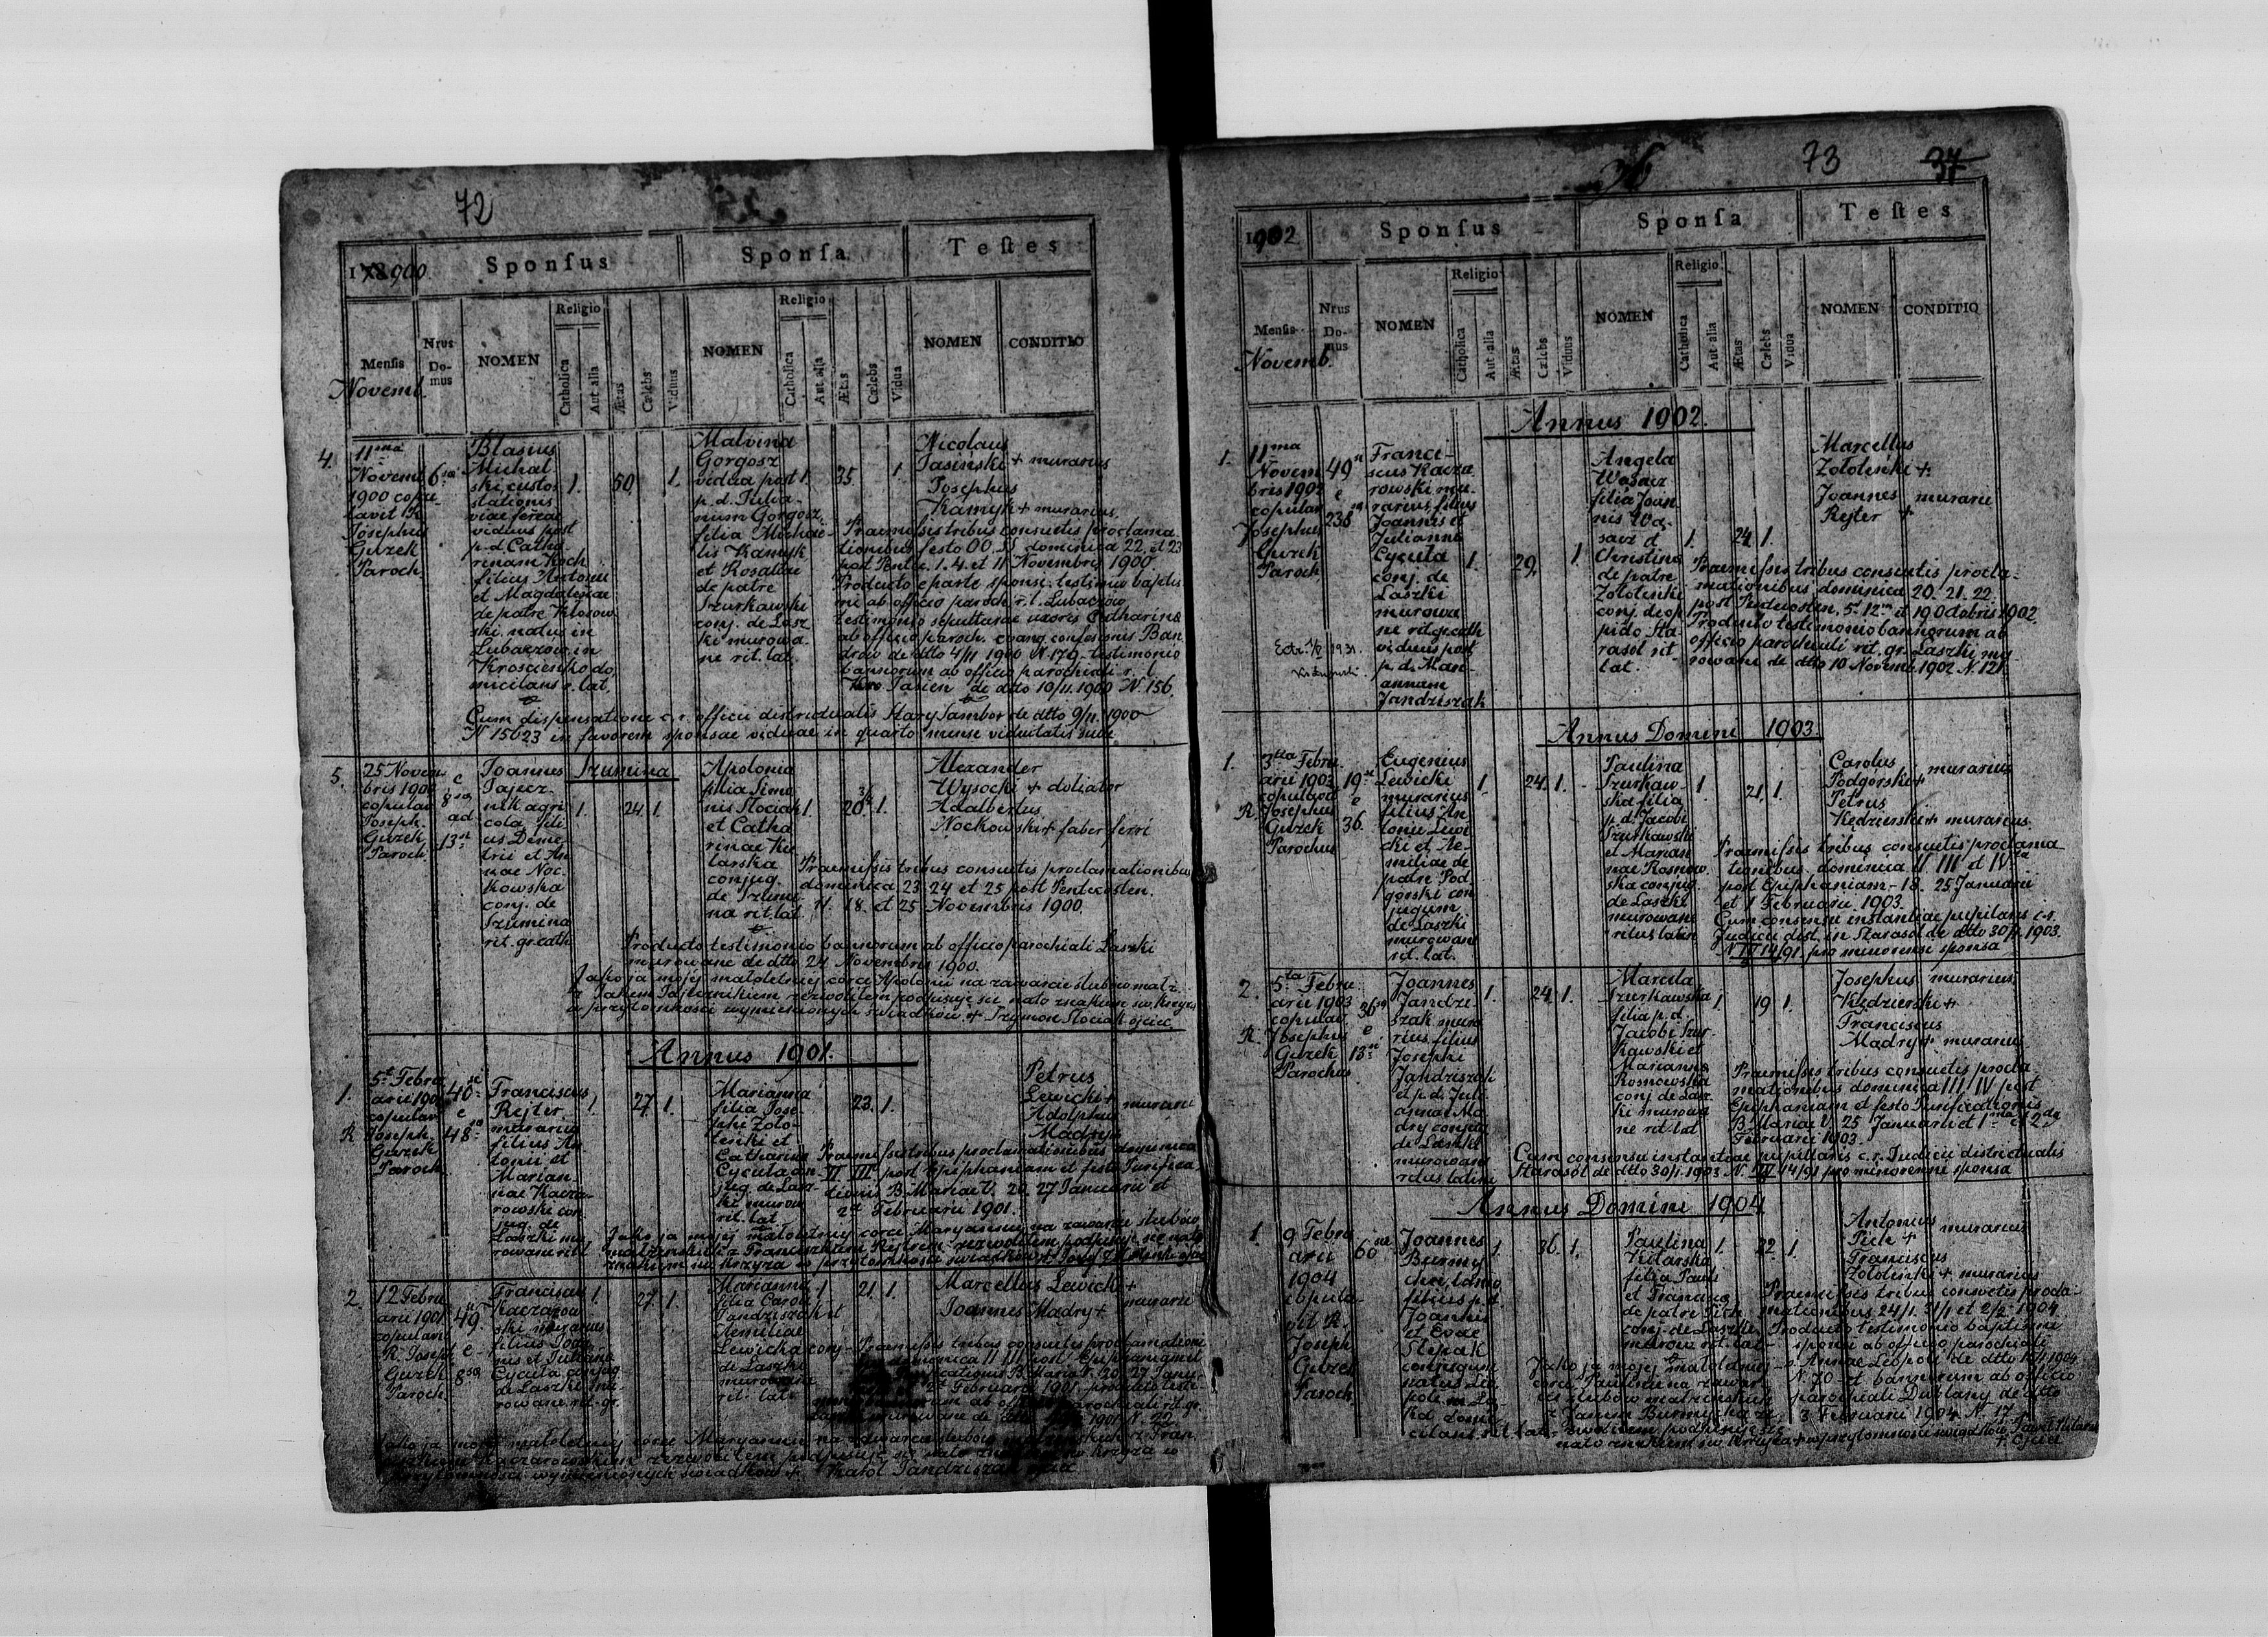 72
1900
Sponsus
Sponsa
Testes
Mensis
Novemb.
Nrus Domus
NOMEN
Religio
Catholica
Aut alia
Ætas
Cælebs
Viduus
NOMEN
Religio
Catholica
Aut alia
Ætas
Cælebs
Vidua
NOMEN
CONDITIO
4.
11ma
Novemb
1900 copu-
lavit R.
Josephus
Guzek
Paroch.
6
Blasius
Michal
ski custos
stationis
viae ferreae
viduus post
p. d. Catha-
rinam Koch
filius Nestorii
et Magdalenae
de patre Kłosow
ski natus in
Lubaczow in
Krościenko do
micilans r. lat.
1. 50 1.
Malvina
Gorgosz
vidua post
p. d. Julia-
num Gorgosz
filia Michae-
lis Kamyk
et Rosaliae
de patre
Szurkawski
conj. de Lasz
ki murowa
ne rit. lat.
1. 35. 1.
Nicolaus
Jasinski + murarius
Josephus
Kamyk + murarius.
Praemissis tribus consuetis proclama
tionibus festo OO. SS. dominica 22. et 23
post Pente. 1. 4. et 11 Novembris 1900.
Producto e parte sponsi testimonio baptis
mi ab officio paroch. r. l. Lubaczow
testimonio sepulturae uxoris Catharinae
ab officio paroch. evang. confessionis Ban
drow de dtto 4/11 1900 N. 179 - testimonio
bannorum ab officio parochiali r. l.
Jasien de dtto 10/11. 1900 N. 156.
Cum dispensatione c. r. officii districtualis Stary Sambor de dtto 9/11. 1900
N 15623 in favorem sponsae viduae in quarto mense viduitatis suae
5.
25 Novem
bris 1900
copulav
Joseph.
Guzek
Paroch.
e
8
ad
13
Joannes
Pajecz-
nik agri
cola fili
us Deme
trii et An
nae Noc-
kowska
conj. de
Szumina
rit. gr. cath
Szumina
1. 24. 1.
Apolonia
filia Simo
nis Stociak
et Catha
rinae Ki
larska
conjug.
de Szumi-
na rit. lat.
1. 20 3/4. 1.
Alexander
Wysocki + doliator
Adalbertus
Nockowski + faber ferri
Praemissis tribus consuetis proclamationibus
dominica 23. 24 et 25 post Pentecosten.
11. 18. et 25 Novembris 1900.
Producto testimonio bannorum ab officio parochiali Laszki
murowane de dtto 24 Novembris 1900.
Jako ja mojej małoletniej córce Apolonii na zawarcie ślubów małż.
z Janem Pajecznikiem zezwoliłem podpisuję się nato znakiem św. krzyża
w przytomności wymienionych świadków. + Szymon Stociak ojciec
Annus 1901.
1.
5 Febru
arii 1901
copulav
R. Joseph.
Guzek
Paroch.
40
e
48
Franciscus
Rejter
murarius
filius An
tonii et
Marian
nae Kacza-
rowski con
jug. de
Laszki mu
rowane rit. l.
1. 27. 1.
Marianna
filia Jose-
phi Zoło-
tenki et
Catharinae
Cycula con
jug. de Lasz-
ki murow
rit. lat.
23. 1.
Petrus
Lewicki +
Adolphus
Mądry +
murarii
Praemissis tribus proclamationibus dominica
II III post Epiphaniam et festo Purifica-
tionis B. Mariae V. 20. 27 Januarii et
2 Februarii 1901.
Jako ja mojej małoletniej córce Maryannie na zawarcie ślubów
małżeńskich z Franciszkiem Rejtrem zezwoliłem podpisuję się nato
znakiem św. krzyża w przytomności świadków +
2.
12 Febru
arii 1901
copulavit
R. Joseph.
Guzek
Paroch.
49.
e
8
Franciscus
Kaczarow
ski murarius
filius Joan
nis et Julianna
Cycula conjug.
de Laszki mu-
rowane rit. gr.
1. 27. 1.
Marianna
filia Caroli
Jandziszak et
Aemiliae
Lewicka conj.
de Laszki
murowane
rit. lat.
1. 21. 1.
Marcellus Lewicki +
Joannes Mądry +
murarii
Praemissis tribus consuetis proclamationi
dominica II III post Epiphaniam et
B. Maria V. 20. 27 Janu-
2 Februarii 1901. producto testi-
ab officio parochiali rit. gr.
1901 N. 22.
Jako ja mojej małoletniej córce Maryannie na zawarcie ślubów
Kaczarowskim zezwoliłem podpisuję się nato
przytomności wymienionych świadków + Karol Jandziszak ojciec
73
37
1902
Sponsus
Sponsa
Testes
Mensis
Novemb.
Nrus Domus
NOMEN
Religio
Catholica
Aut alia
Ætas
Cælebs
Viduus
NOMEN
Religio
Catholica
Aut alia
Ætas
Cælebs
Vidua
NOMEN
CONDITIO
Annus 1902.
1.
11ma
Novem
bris 1902
copulav
Josephus
Guzek
Paroch
49
e
238
Franci-
scus Kacza
rowski mu-
rarius, filius
Joannis et
Julianna
Cycula
conj. de
Laszki
murowa
ne rit. gr. cath
viduus post
p. d. Mari-
annam
Jandziszak
1. 29. 1
Angela
Wasacz
filia Joan
nis Wa-
sacz et
Christina
de patre
Zołotenki
conj. de op
pido Sta
rasol rit
lat.
1. 24. 1.
Marcellus
Zołotenki +
Joannes murarii
Rejter +
Praemissis tribus consuetis procla-
mationibus dominica 20. 21. 22.
post Pentecosten, 5. 12. et 19 Octobris 1902.
Producto testimonio bannorum ab
officio parochiali rit. gr. Laszki mu
rowane de dtto 10 Novemb. 1902 N. 121
1931.
Annus Domini 1903
1.
3tia Febru.
arii 1903
copulavit
R. Josephus
Guzek
Parochus
19
e
36.
Eugenius
Lewicki
murarius
filius An
tonii Lewi
cki et Ae-
miliae de
patre Pod
górski con
jugum
de Laszki
murowane
rit. lat.
1. 24. 1.
Paulina
Szurkaw-
ska filia
p. d. Jacobi
Szurkawski
et Marian
nae Rosnow
ska conjug.
de Laszki
murowane
ritus latin
1 21. 1.
Carolus
Podgórski + murarius
Petrus
Kędzierski + murarius.
Praemissis tribus consuetis proclama
tionibus dominica II III et IV
post Epiphaniam - 18. 25 Januarii
et 1 Februarii 1903.
Cum consensu instantiae pupilaris c. r.
Judicii dist. in Starasol de dtto 30/1. 1903.
N IV 14/91 pro minorenne sponsa
2.
5ta Febru.
arii 1903
copulav.
R. Josephus
Guzek
Parochus
36
e
13
Joannes
Jandzi-
szak mura
rius filius
Josephi
Jandziszak
et p. d. Juli
annae Mą
dry conjug
de Laszki
murowane
ritus latini
1. 24. 1.
Marcela
Szurkawska
filia p. d.
Jacobi Szur
kawski et
Marianna
Rosnowska
conj. de Lasz
ki murowa
ne rit. lat.
1. 19 1.
Josephus murarius
Kędzierski +
Franciscus
Mądry + murarius
Praemissis tribus consuetis procla-
mationibus dominica III IV post
Epiphaniam et festo Purificationis
B. Mariae V. 25 Januarii et 1ma et 2da
Februarii 1903.
Cum consensu instantiae pupillaris c. r. Judicii districtualis
Starasol de dtto 30/1. 1903 N. IV 14/91 pro minorenne sponsa
Annus Domini 1904
1
9 Febru
arii
1904
copula-
vit R.
Joseph
Guzek
Paroch
60
Joannes
Burmy
cha, latomo
filius p. d.
Joannis
et Evae
Stepak
conjugum
natus Leo
poli
ka domi
cilans rit. lat.
1. 36. 1.
Paulina
Kilarska
filia Pauli
et Francisca
de patre Pich
conj. de Laszki
murow. rit. lat.
1. 22. 1.
Antonius
Pich + murarius
Franciscus
Zołotenki + murarius
Praemissis tribus consuetis procla-
mationibus 24/1. 31/1 et 2/2 1904
Producto testimonio baptismi
sponsi ab officio parochiali
s. Annae Leopoli de dtto 1904
N. 70 et bannorum ab officio
parochiali Dublany de dtto
3 Februarii 1904 N. 17
Jako ja mojej małoletniej
córce Paulinie na zawar
cie ślubów małżeńskich
z Janem Burmychą ze
zwoliłem podpisuję się
nato znakiem św. krzyża + w przytomności świadków Paweł Kilarski
+ ojciec